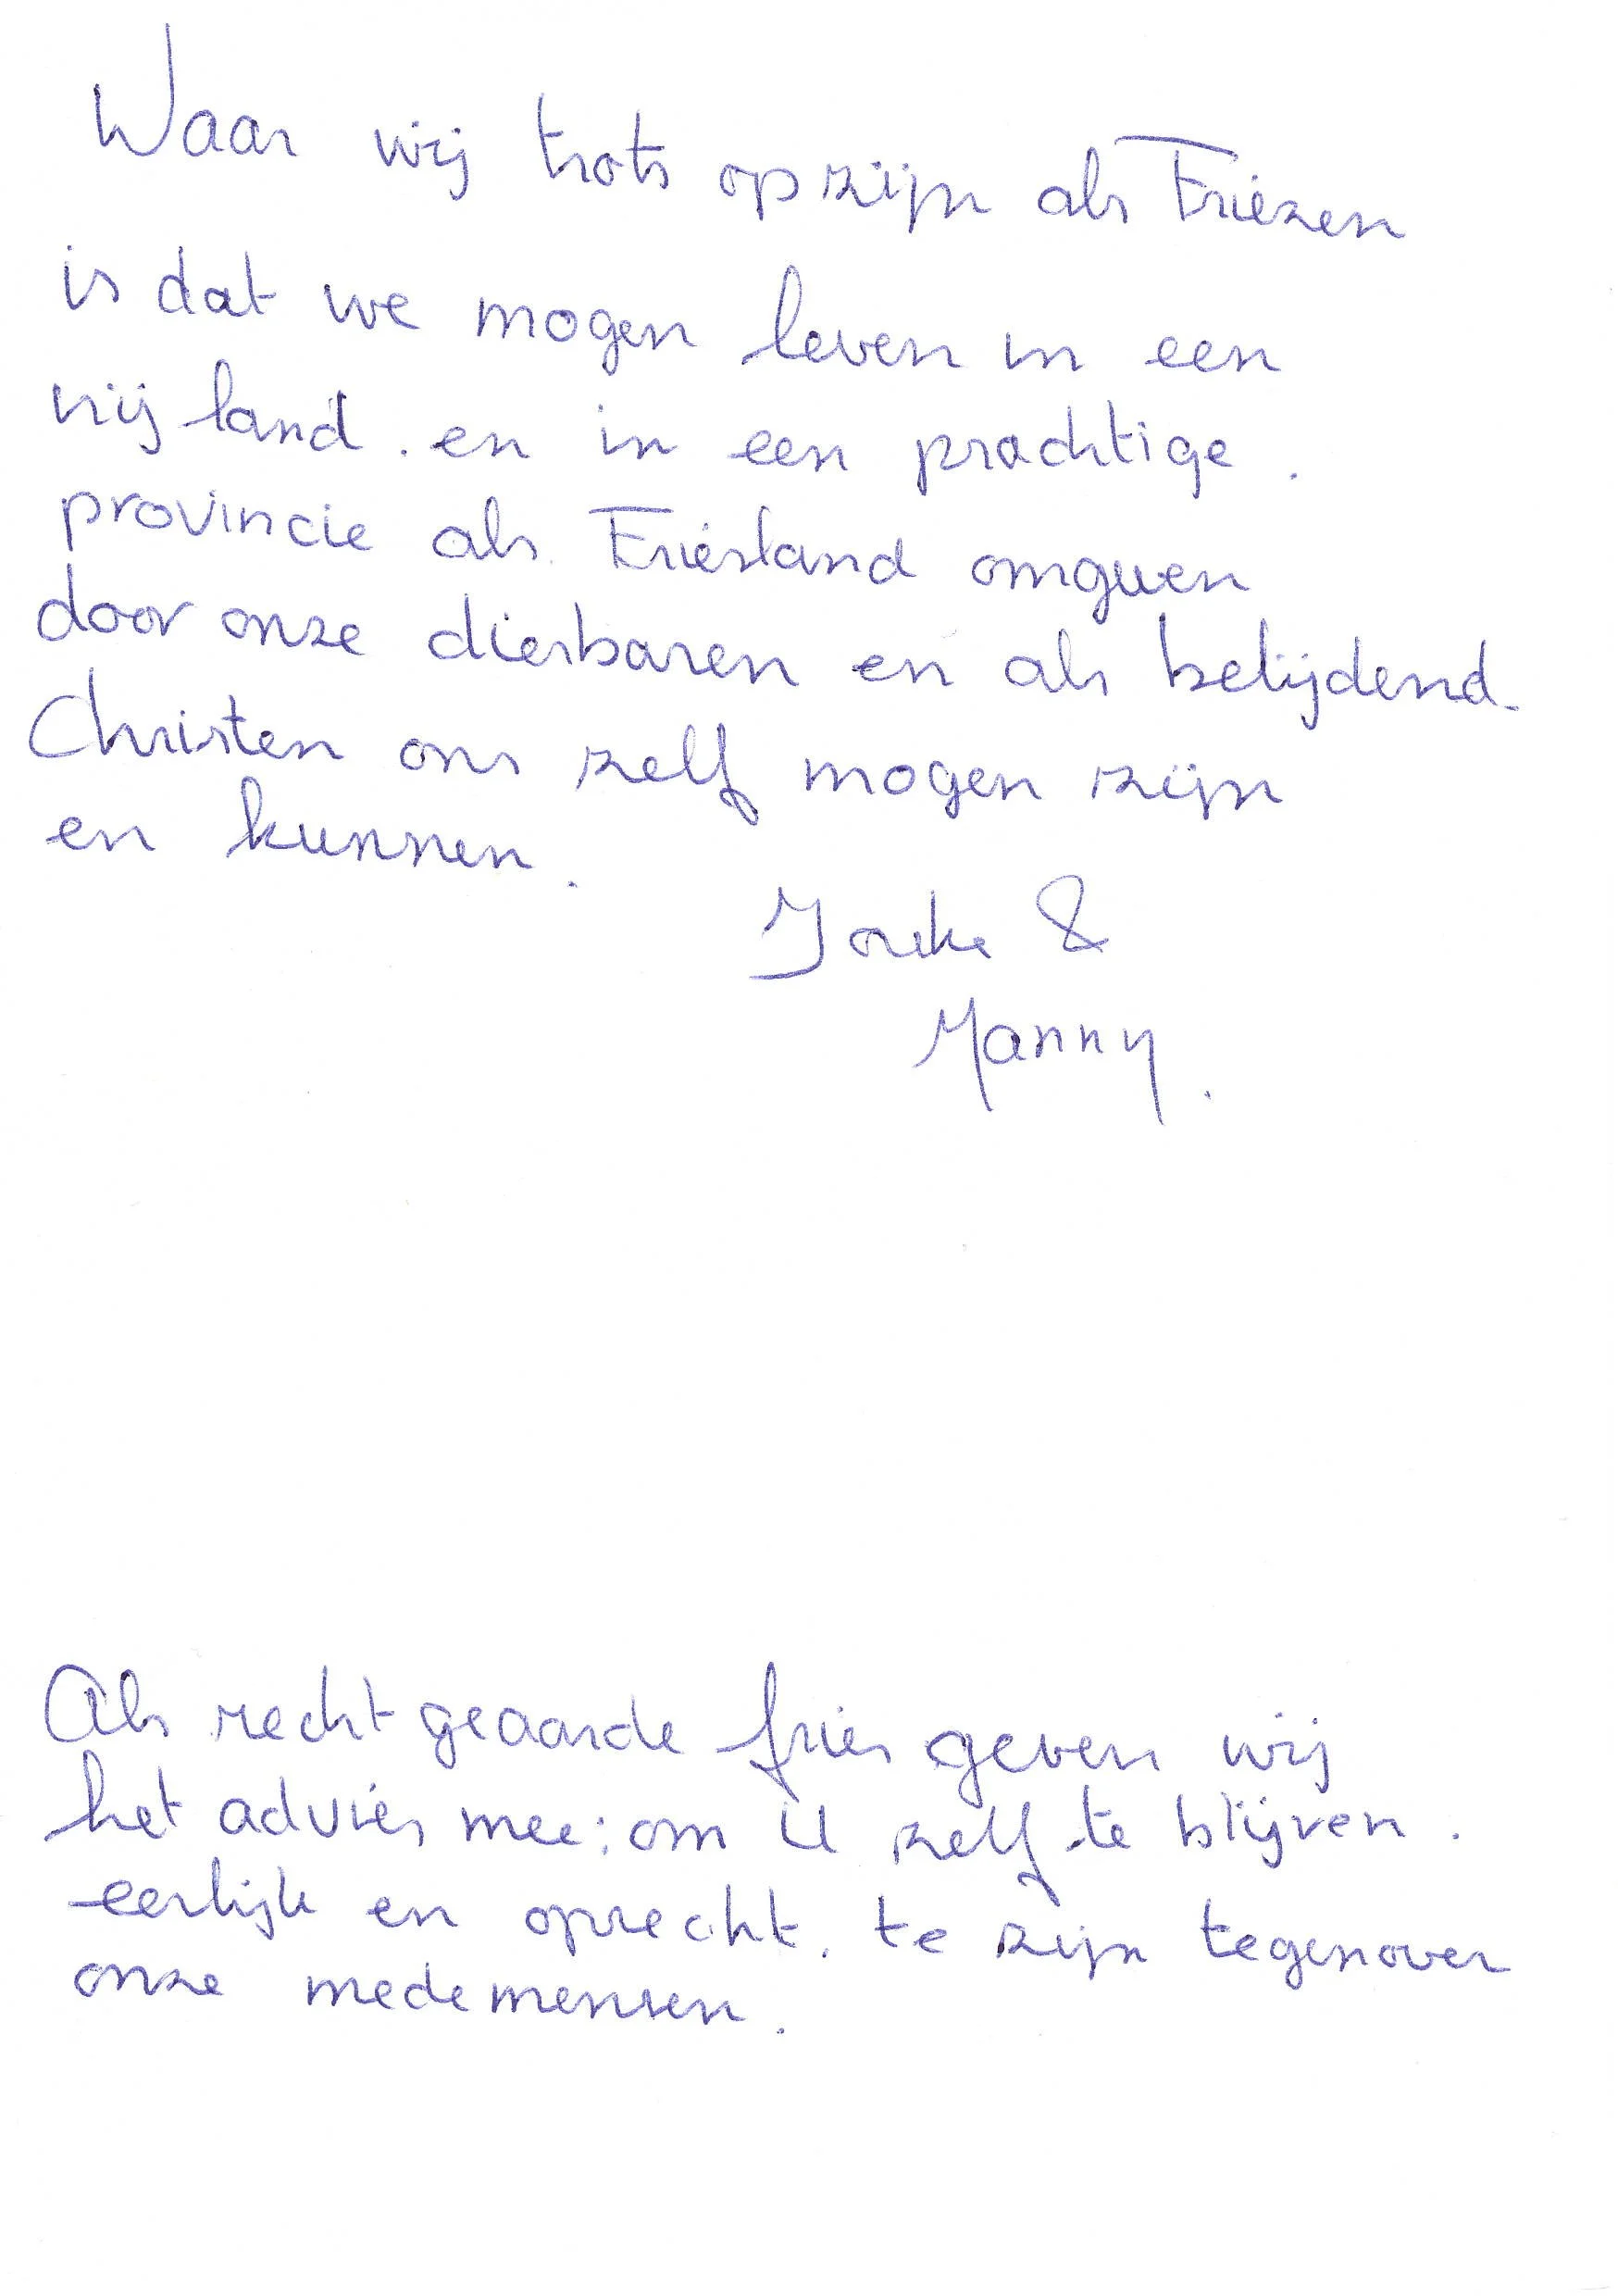 Waar wij trots op zijn als Friezen
is dat we mogen leven in een
vrij land. en in een prachtige.
provincie als Friesland omgeven
door onze dierbaren en als belijdend
Christen ons zelf mogen zijn
en kunnen.
&
Manny.
Als recht geaarde fries geven wij
het advies mee: om U zelf te blijven.
eerlijk en oprecht. te zijn tegenover
onze mede mensen.